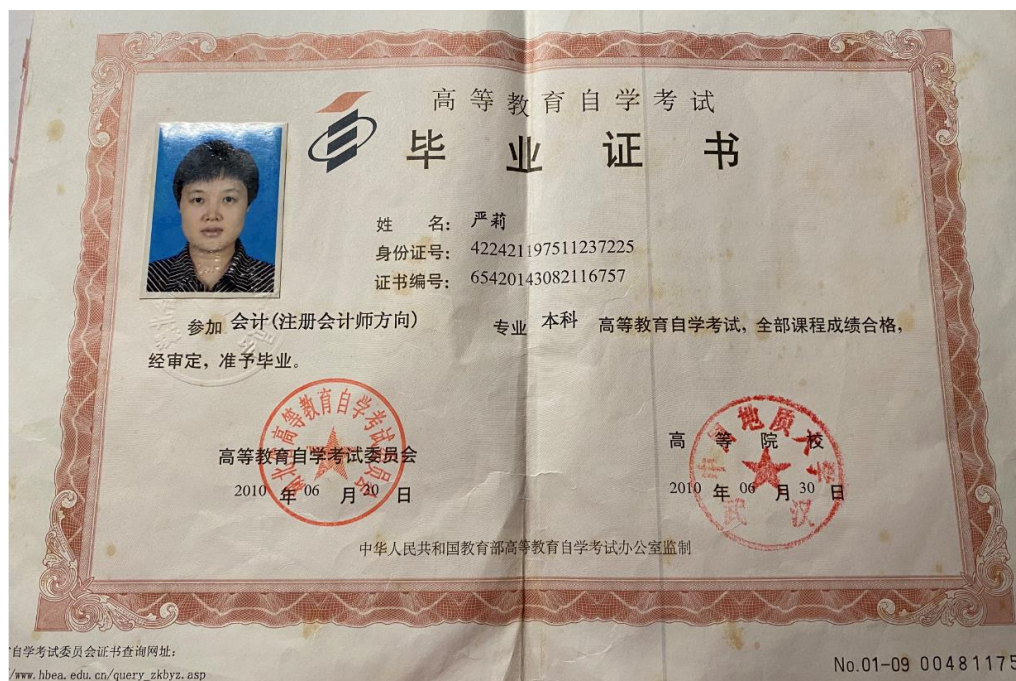 高等教育自学考试
毕业证书
姓 名: 严莉
身份证号: 422421197511237225
证书编号: 65420143082116757
参加 会计(注册会计师方向) 专业 本科 高等教育自学考试，全部课程成绩合格，
经审定，准予毕业。
湖北省高等教育自学考试委员会
高等教育自学考试委员会
2010 年 06 月 30 日
地质大学
武汉
高等院校
2010 年 06 月 30 日
中华人民共和国教育部高等教育自学考试办公室监制
自学考试委员会证书查询网址:
/www.hbea.edu.cn/query_zkbyz.asp
No.01-09 00481175